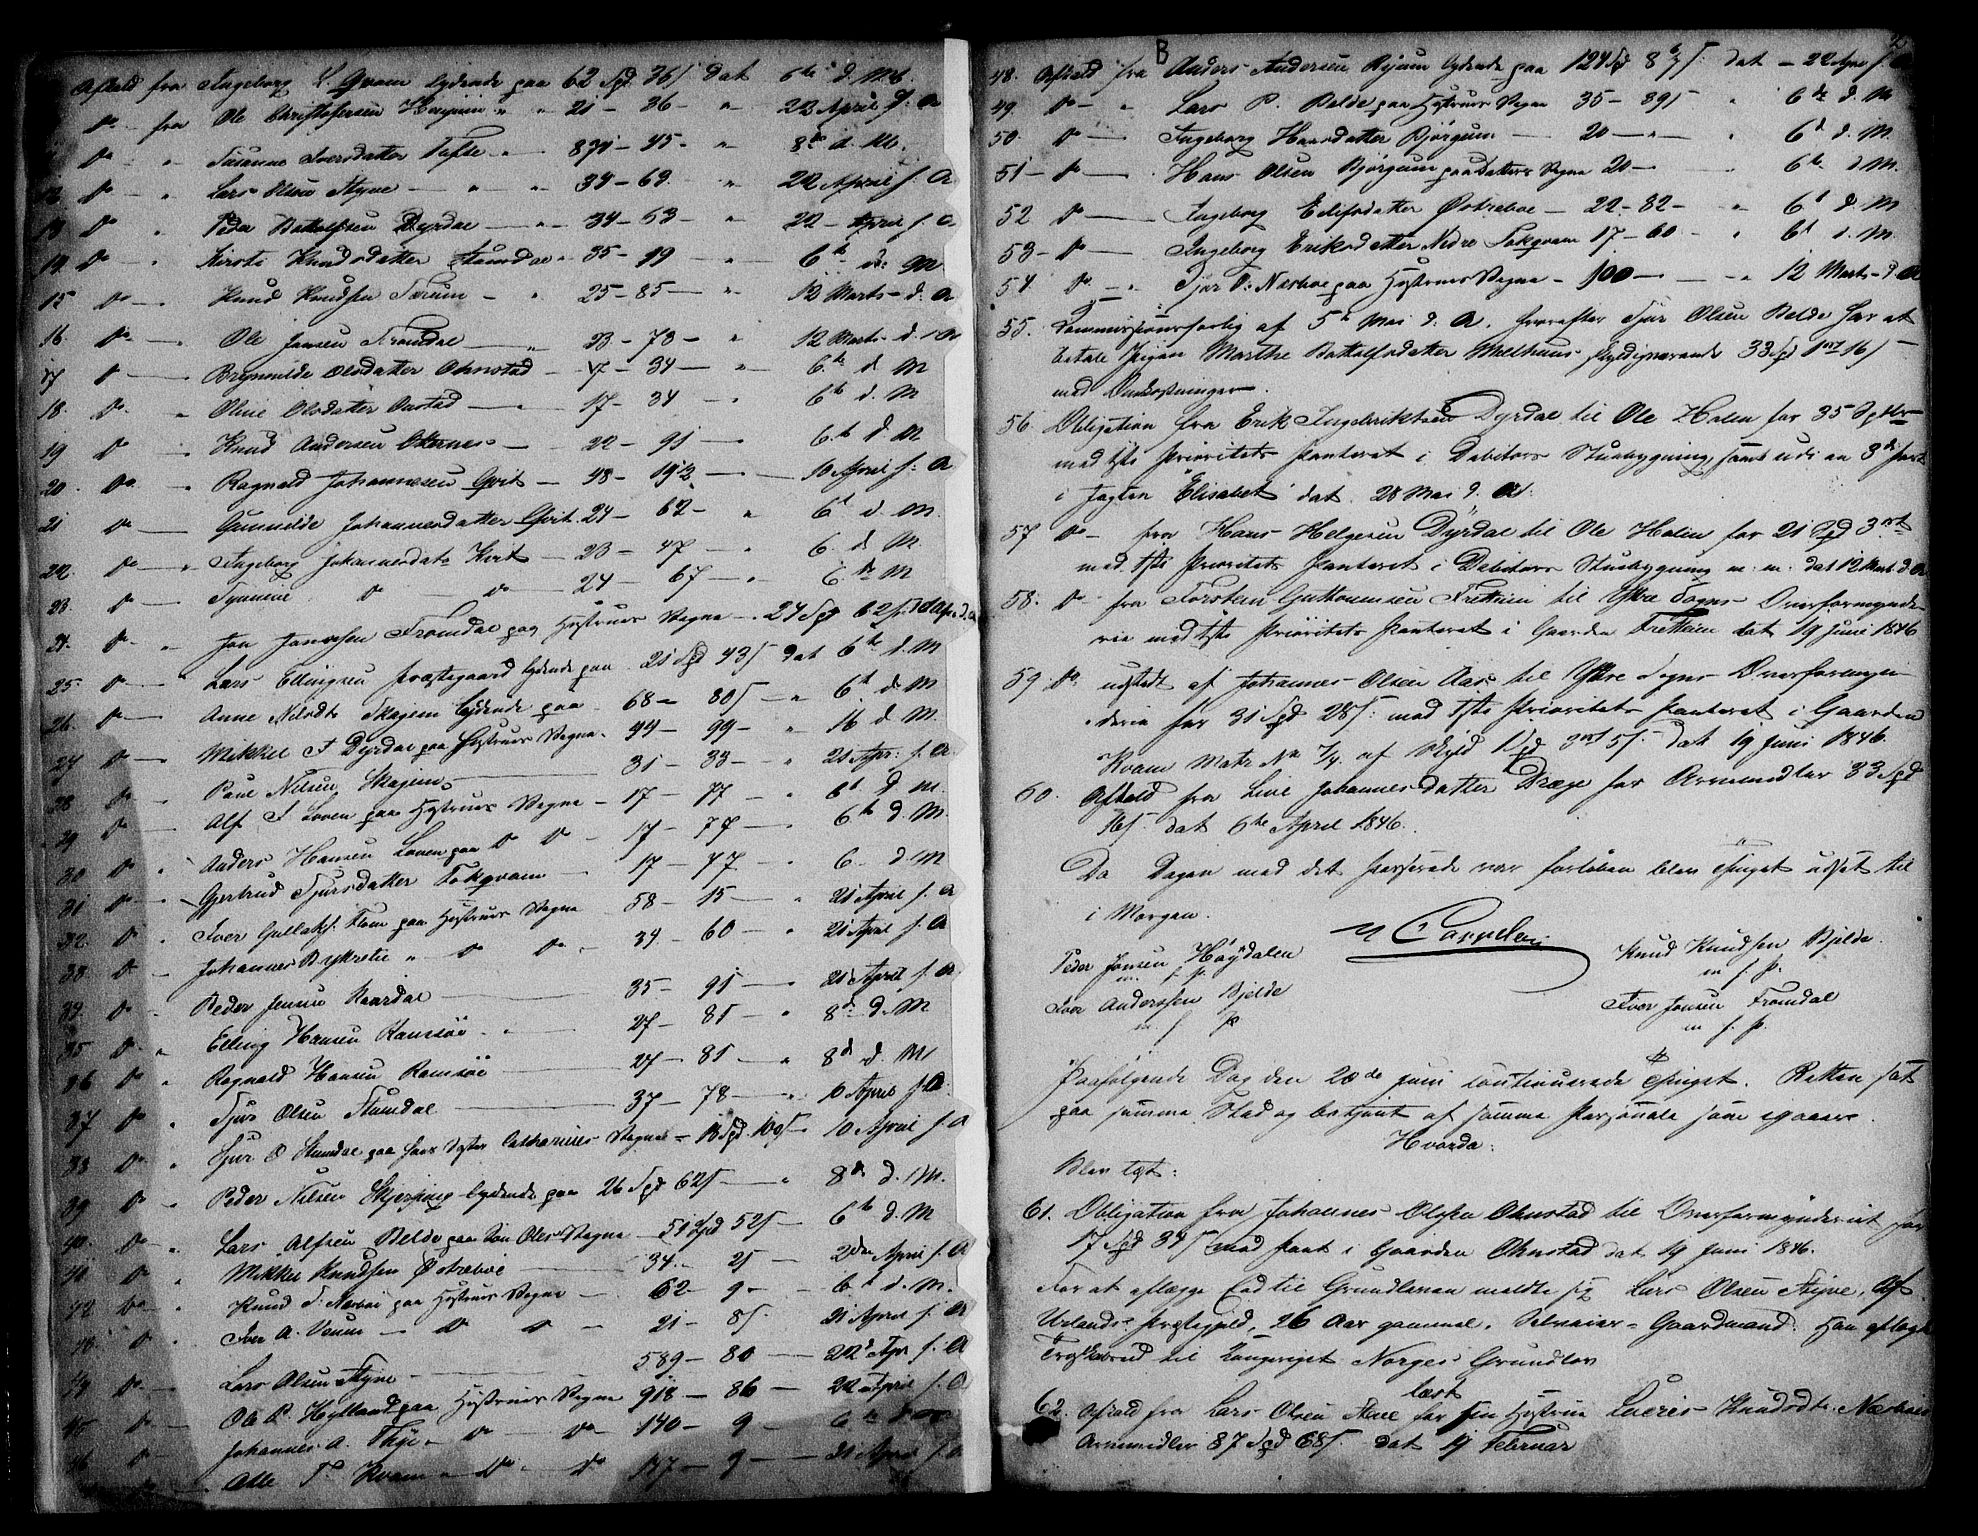 Afkald fra Ingeborg L Qvam lydende paa 62 Spd 36 s dat 6te d. M.
do - fra Ole Christophersen " " 21 - 36 - " 22 April d. A
do " Susanne Iversdatter Tufte - " 870 - 45 - " 8de d. M.
12 do " Lars Olsen Styve - " " 34 - 69 " 22 April f. A
13 do " Peder Bottolfsen Dyrdal - 34 - 53 - " 22 - April f. A
14 do " Kirsti Knudsdatter Stundal - 35 - 19 - " 6te d: M
15 do - Knud Knudsen - " 25 - 85 - " 12 Marts - d. A
16 do - Ole Jonsen Fromdal - " 23 - 78 - " 12 Marts - d. A
17 do - Brynnilde Olsdatter Ohnstad - 17 - 34 - " 6te d M
18. do " Oline Olsdatter Onstad - 17 - 34 " 6te d. M
19 do - Knud Andersen - 22 - 91 - 6te d M
20 do " Ragnald Johannesen Qvit - 48 - 19 1/2 - 10 April f. A
21 do - Gunnilde Johannesdatter Qvit. 24 - 62 - " 6t d. M.
22. do - Ingeborg Johannesdatr Kvit - 23 - 47 - " 6. d M
23. do - Synneve do - do - 24 - 67 - " 6te M
24. do " Jon Jonssen Fromdal paa Hustrues Vegne - 24 Spd 62 s d. A
25. do - Lars Ellingsen Præstegaard lydende paa 21 Spd 43 s dat 6te d. M
26. do - Anne Nilsdtr Skajem lydende paa 68 - 80 s " 6t d. M
27 do - Mikkel I Dyrdal paa Hustrues Vegne - 44 - 99 - " 16 d. M.
28 do - Paul Nilsen Skajem - 31 - 33 - " 21 Apr: f. A
29 do - Alf I Loven paa Hustrues Vegne - 17 - 77 - " 6t d M.
30 do " Anders Hansen Loven paa do do - 17 - 77 - " 6te d. M.
31 do - Gjertrud Sjursdatter Tokqvam - 17 - 77 - 6 - d. M
32. do " Iver Gullaks. Flom paa Hustrues Vegne - 58 - 15 - " 21 April f. A
33 do - Johannes " do do - 34 - 60 - " 21 April f. A
34. do " Peder Jensen Kaardal - 35 - 91 - " 21 April f. A
35 do " Elling Hansen Ramsøe - " 27 - 81 - " 8de d. M
36 do " Ragnald Hansen Ramsøe - 27 - 81 - " 8d d. M
37 do " Sjur Olsen Stundal - 37 - 78 - " 10 April f. A
38 do " Sjur O Stundal paa hans Søster Catharines Vegne - 18 Spd 100 s - 10 April f. A
39 do " Peder Nilsen Skjerping lydende paa 26 Spd 62 s - " 8de d. M.
40. do " Lars Alfsen Belde paa Søn Oles Vegne - 51 Spd 52 s - 6te d. M
41 do " Mikkel Knudsen Østreboe - 34. - 25 - 2den April f. A
42 do " Knud T. Næsboe paa Hustrues Vegne - 62 - 9 - 6te d. M.
43. do " Iver A. Venen - do do - 21 - 87 - 21 April f. A
44 do - Lars Olsen Styve - 589 - 80 - 22d Apr f. A
45 do - Ole P. Hylland paa Hustrues Vegne 918 - 86 - 22 April f. A
46 do - Johannes A. Thye - do - do - 140 - 9 - 6te
do - Atle T. Kvam - do - do 147 - 9 - 21 April f. A
B
48. Afkald fra Anders Andersen lydende paa 124 Spd 8 s: dat - 22 Apr f. A
49 do - " Lars P. Belde paa Hustrues Vegne 35 - 89 s " 6te d. M
50. do - Ingeborg Hansdatter Bjørgum - 20 - " - " 6d d. M
51 - do - Hans Olsen Bjørgum paa Datters Vegne 20 - 6te d. M.
52 do - Ingeborg Ellefsdatter Østreboe - 22 - 82 - " 6d d. M
53 - do - Ingeborg Eriksdatter Nedre Tokqvam 17 - 60 - " 6d d. M.
54 do - " Sjur T. Næsboe paa Hustrues Vegne - 100 - " 12 Marts - d. A
55. Commissionsforlig af 5te Mai d. A. hvorefter Sjur Olsen Belde har at
betale Pigen Marthe Bottolfsdatter Melhuus skyldigværende 33 Spd 1 ort 16 s
med Omkostninger.
56. Obligation fra Erik Ingebriktsen Dyrdal til Ole Holen for 35 Spdlr
med 1ste Prioritets Panteret i Debitors Stuebygning samt udi en 3die part
i Jagten "Elisabet" dat. 28 Mai d. A.
57 do - fra Hans Helgesen Dyrdal til Ole Holen for 21 Spd 3 ort
med 1ste Prioritets Panteret i Debitors Stuebygning m. m. dat 12 Marts d. A
58. do - fra Torsten Guttormsen Frettem til Ytre Sogns Overformynde-
rie med 1ste Prioritets Panteret i Gaarden Frettem dat 19 Juni 1846
59 do udstedt af Johannes Olsen Aas til Ytre Sogns Overformyn-
derie for 31 Spd 28 s: med 1ste Prioritets Panteret i Gaarden
Kvam Matr No 7/4. af Skyld 1 Spd 3 ort 5 s dat 19 Juni 1846.
60. Afkald fra Live Johannesdatter Dræge for Arvemidler 33 Spd
16 s: dat 6te April 1846.
Da Dagen med det Passerede var forløben blev Thinget udsat til
i Morgen.
N Cappelen
Peder Jonsen Høydalen
m. f. P.
Iver Anderssen Bjelde
m f P
Knud Knudsen Bjelde.
m f. P.
Iver Jonsen Fromdal
m. f. P.
Paafølgende Dag den 20de Juni continuerede Thinget. Retten sat
paa samme Sted og betjent af samme Personale som igaar.
Hvorda:
Blev læst:
61. Obligation fra Johannes Olsen Ohnstad til Overformynderiet for
17 Spd 34 s med Pant i Gaarden Ohnstad dat 19 Juni 1846.
For at aflægge Eed til Grundloven meldte sig Lars Olsen Styve, Af
Urlands Præstegjeld, 26 Aar gammel, Selveier - Gaardmand. Han aflagde
Troskabseed til Kongeriget Norges Grundlov
læst
62. Afkald fra Lars Olsen Styve for sin Hustrue Knudsdtr. Næsboes
Arvemidler 87 Spd 68 s. dat 19 Februar